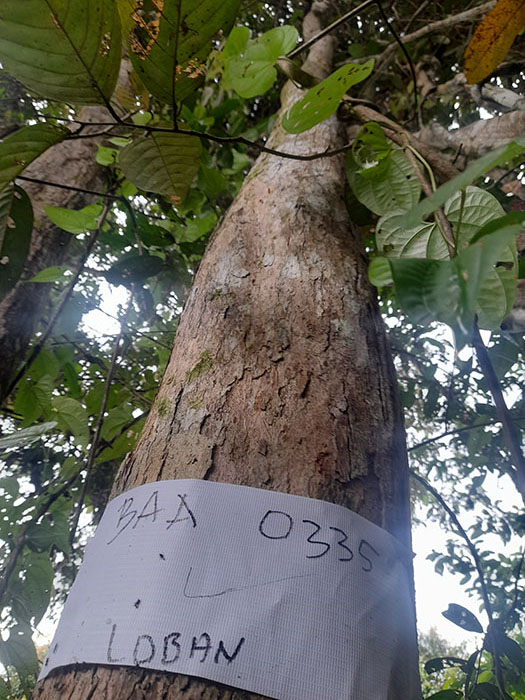 BAA 0335
LOBAN